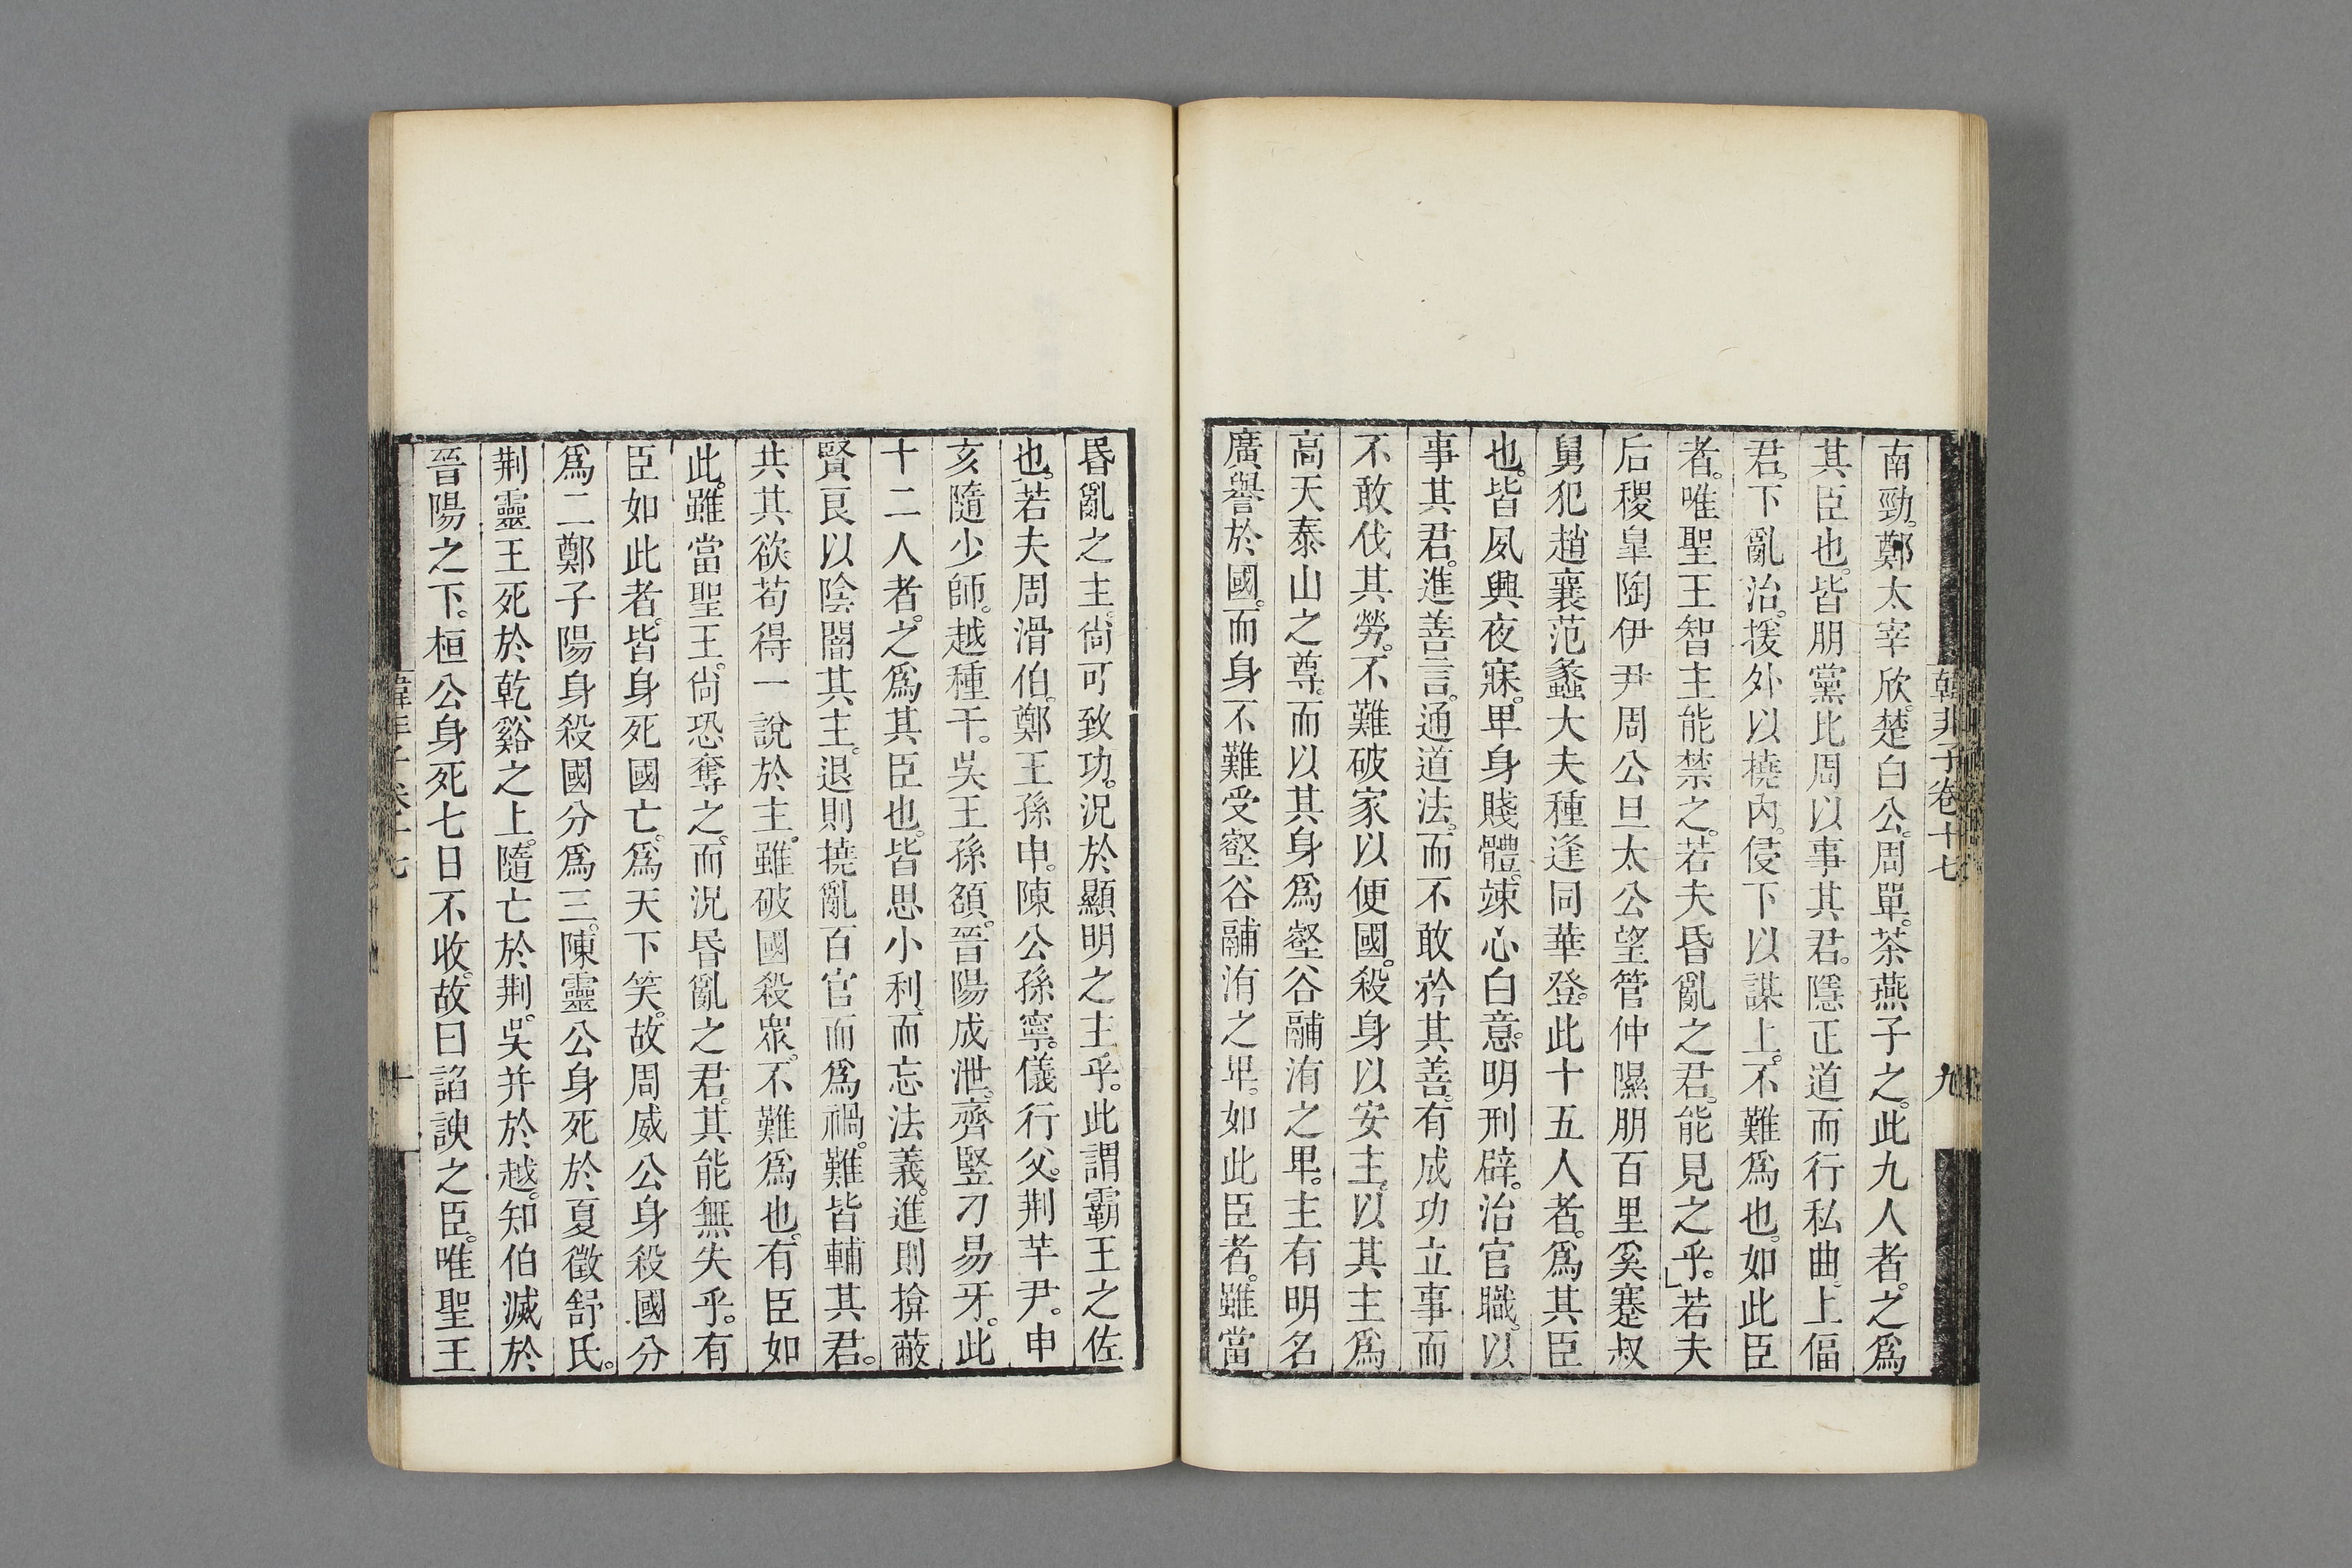 韓非子卷十七
九
南勁。鄭太宰欣。楚白公。周單。茶燕子之。此九人者。之爲
其臣也。皆朋黨比周以事其君。隱正道而行私曲。上偪
君。下亂治。援外以撓內。侵下以謀上。不難爲也。如此臣
者。唯聖王智主能禁之。若夫昏亂之君。能見之乎。若夫
后稷皐陶伊尹周公旦太公望管仲隰朋百里奚蹇叔
舅犯趙襄范蠡大夫種逢同華登。此十五人者。爲其臣
也。皆夙興夜寐。卑身賤體。竦心白意。明刑辟。治官職。以
事其君。進善言。通道法。而不敢矜其善。有成功立事而
不敢伐其勞。不難破家以便國。殺身以安主。以其主爲
高天泰山之尊。而以其身爲壑谷鬴洧之卑。主有明名
廣譽於國。而身不難受壑谷鬴洧之卑。如此臣者。雖當
昏亂之主。尙可致功。況於顯明之主乎。此謂霸王之佐
也。若夫周滑伯。鄭王孫申。陳公孫寧。儀行父。荆芊尹。申
亥隨少師。越種干。吳王孫頟。晉陽成泄。齊豎刁易牙。此
十二人者。之爲其臣也。皆思小利。而忘法義。進則揜蔽
賢良以陰闇其主。退則撓亂百官而爲禍。難皆輔其君。
共其欲苟得一說於主。雖破國殺眾。不難爲也。有臣如
此。雖當聖王。尙恐奪之。而況昏亂之君。其能無失乎。有
臣如此者。皆身死國亡。爲天下笑。故周威公身殺國分
爲二鄭子陽身殺國分爲三。陳靈公身死於夏徵舒氏。
荆靈王死於乾谿之上。隨亡於荆。吳并於越。知伯滅於
晉陽之下。桓公身死七日不收。故曰諂諛之臣。唯聖王
十